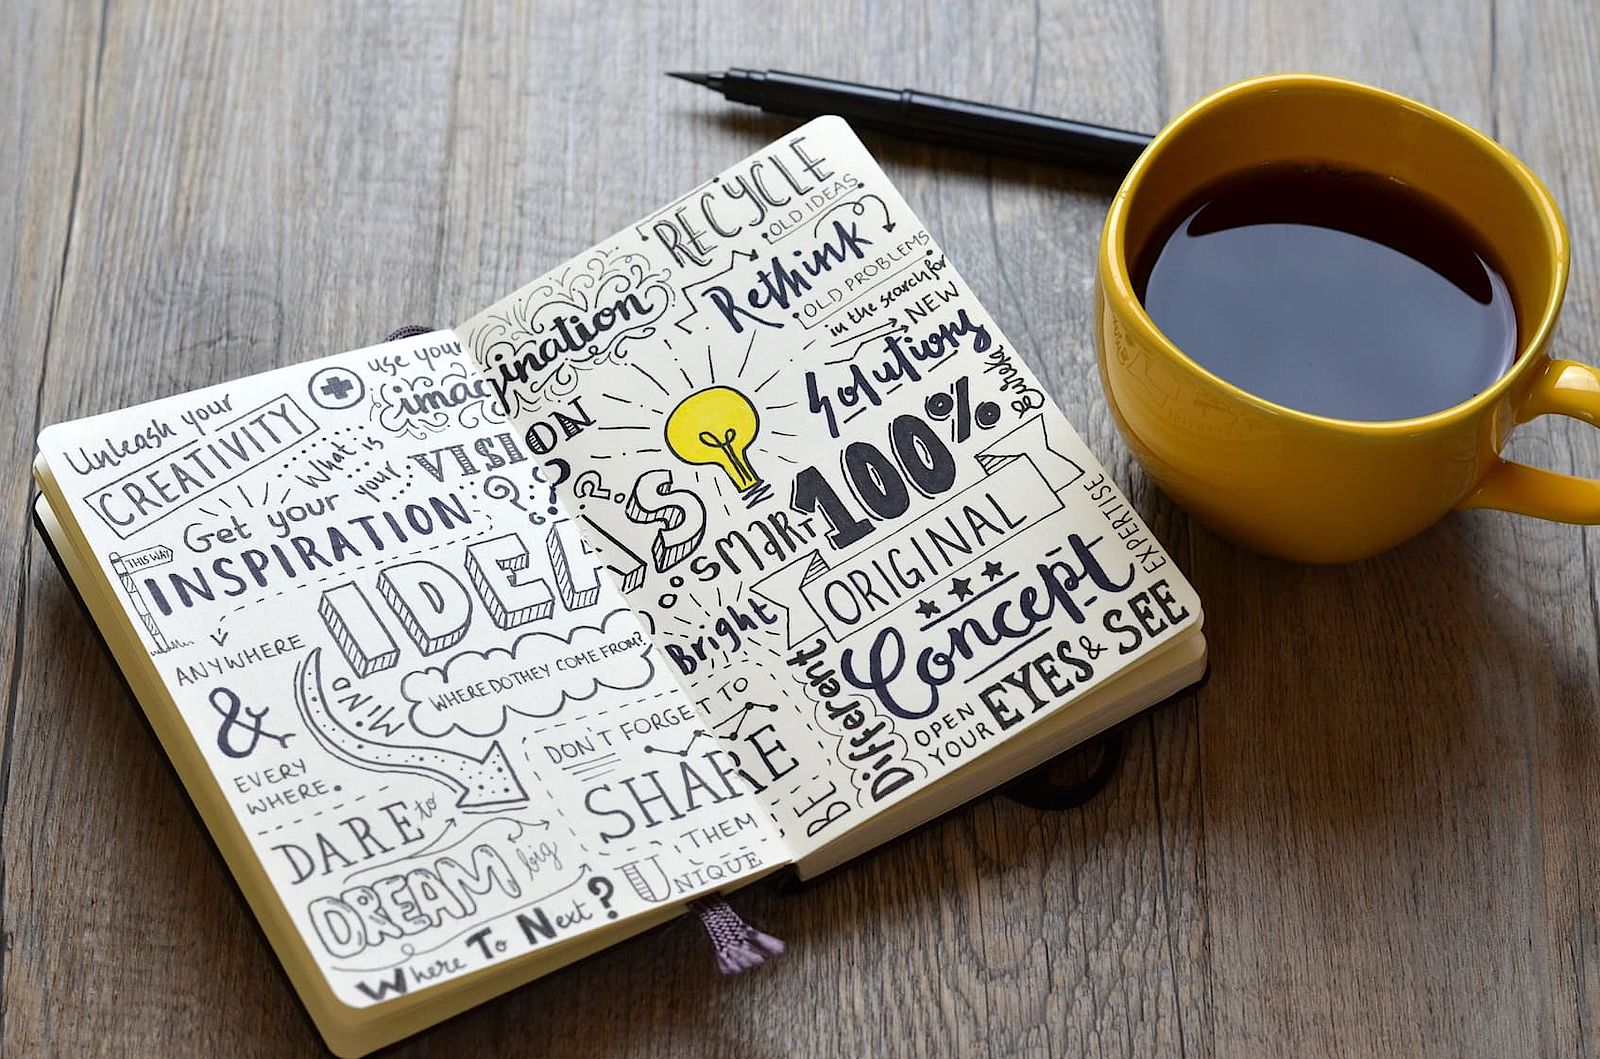 Unleash your
CREATIVITY
use your
imagination
What is
your
VISION
??
Get your
INSPIRATION
THIS WAY
ANYWHERE
&
EVERY
WHERE.
IDEAS
MIND
WHERE DO THEY COME FROM?
DON'T FORGET TO
SHARE
THEM
DARE to
DREAM big
Where To Next?
UNIQUE
RECYCLE
OLD IDEAS
Rethink
OLD PROBLEMS
in the search for
NEW
Solutions
eureka
100%
SMART
ORIGINAL
Bright
Concept
EXPERTISE
BE
Different
OPEN
YOUR
EYES & SEE